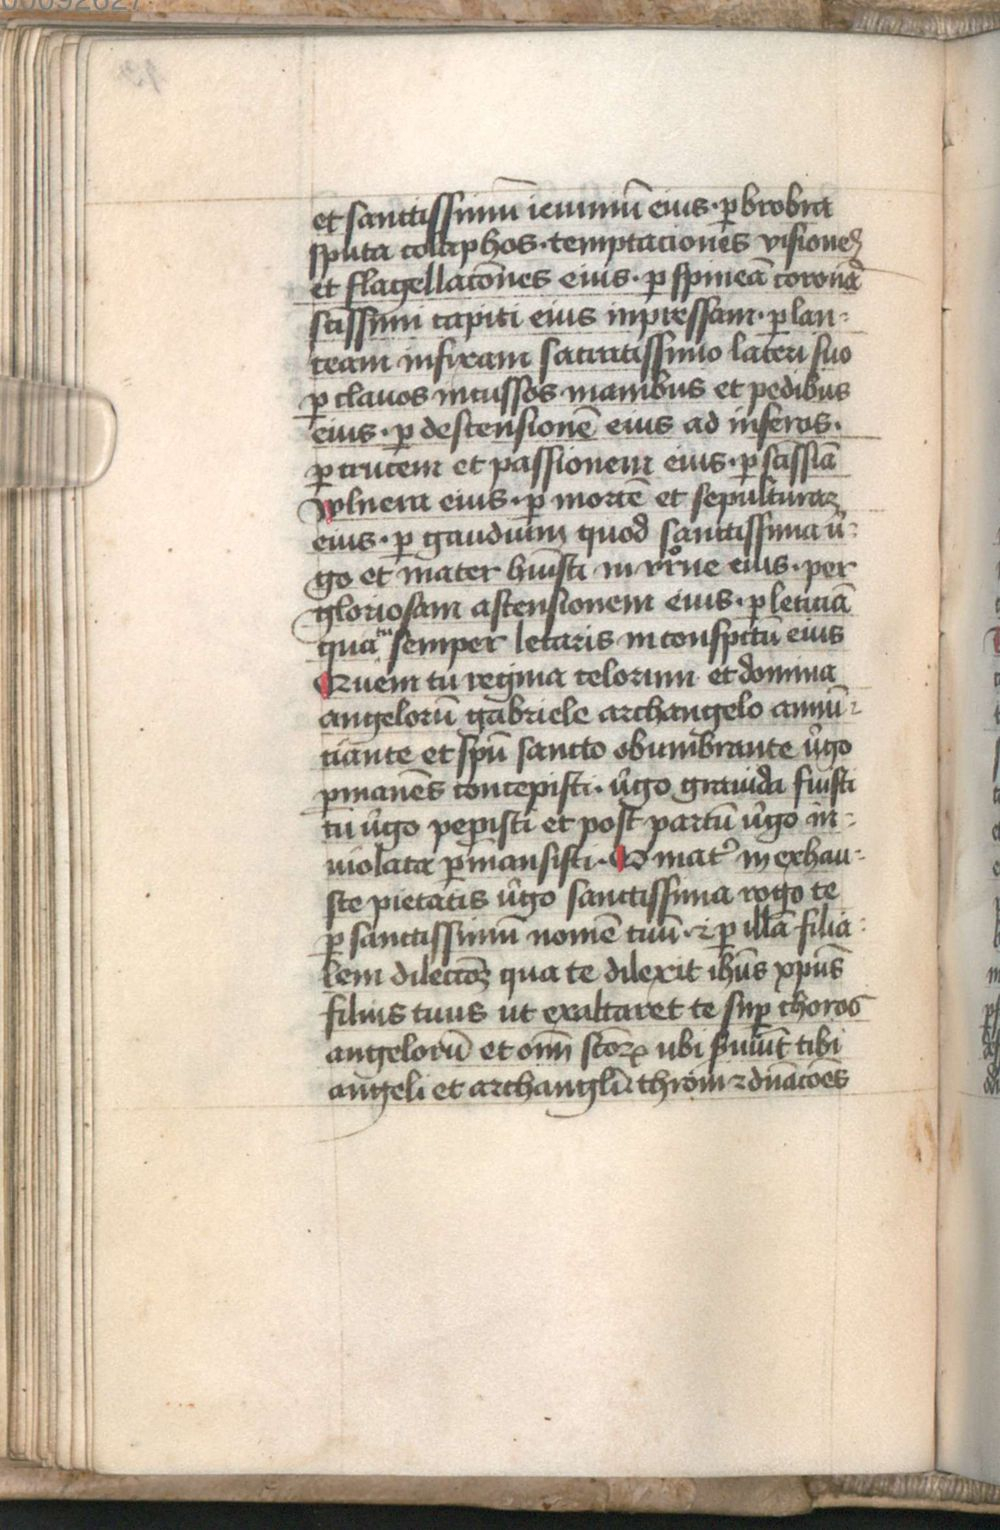 et sanctissimū ieiuniū eius · ꝑ brobria
sputa colaphos · temptaciones visiones
et flagellacōnes eius · ꝑ spineā coronā
scissimi capiti eius inpressam · ꝑ lan-
ceam infixam sacratissimo lateri suo
ꝑ clauos incussos manibus et pedibus
eius · ꝑ descensionē eius ad inferos ·
ꝑ crucem et passionem eius · ꝑ scīssiā
wlnera eius · ꝑ mortē et sepulturaꝫ
eius · ꝑ gaudium quod sanctissima v̄-
go et mater huīsti in rrōne eius · per
gloriosam ascensionem eius · ꝑ leticiā
qua tu semper letaris in conspctū eius
Quem tu regina celorum et domina
angelorū gabriele archangelo annū-
ciante et spū sancto obumbrante v̄go
ꝑmanēs concepisti · v̄go grauida fuisti
tu v̄go peꝑisti et post partū v̄go in-
uiolata ꝑmansisti · O mat᷑ in exhau-
ste pietatis v̄go sanctissima rogo te
ꝑ sanctissimū nomē tuū · ⁊ ꝑ illā filia-
lem dilectōꝫ qua te dilexit ihūs xpūs
filius tuus ut exaltaret te suꝑ choros
angelorū et om̄i scōꝝ ubi ẜuiūt tibi
angeli et archangl̄i · throni ⁊ dn̄acōes